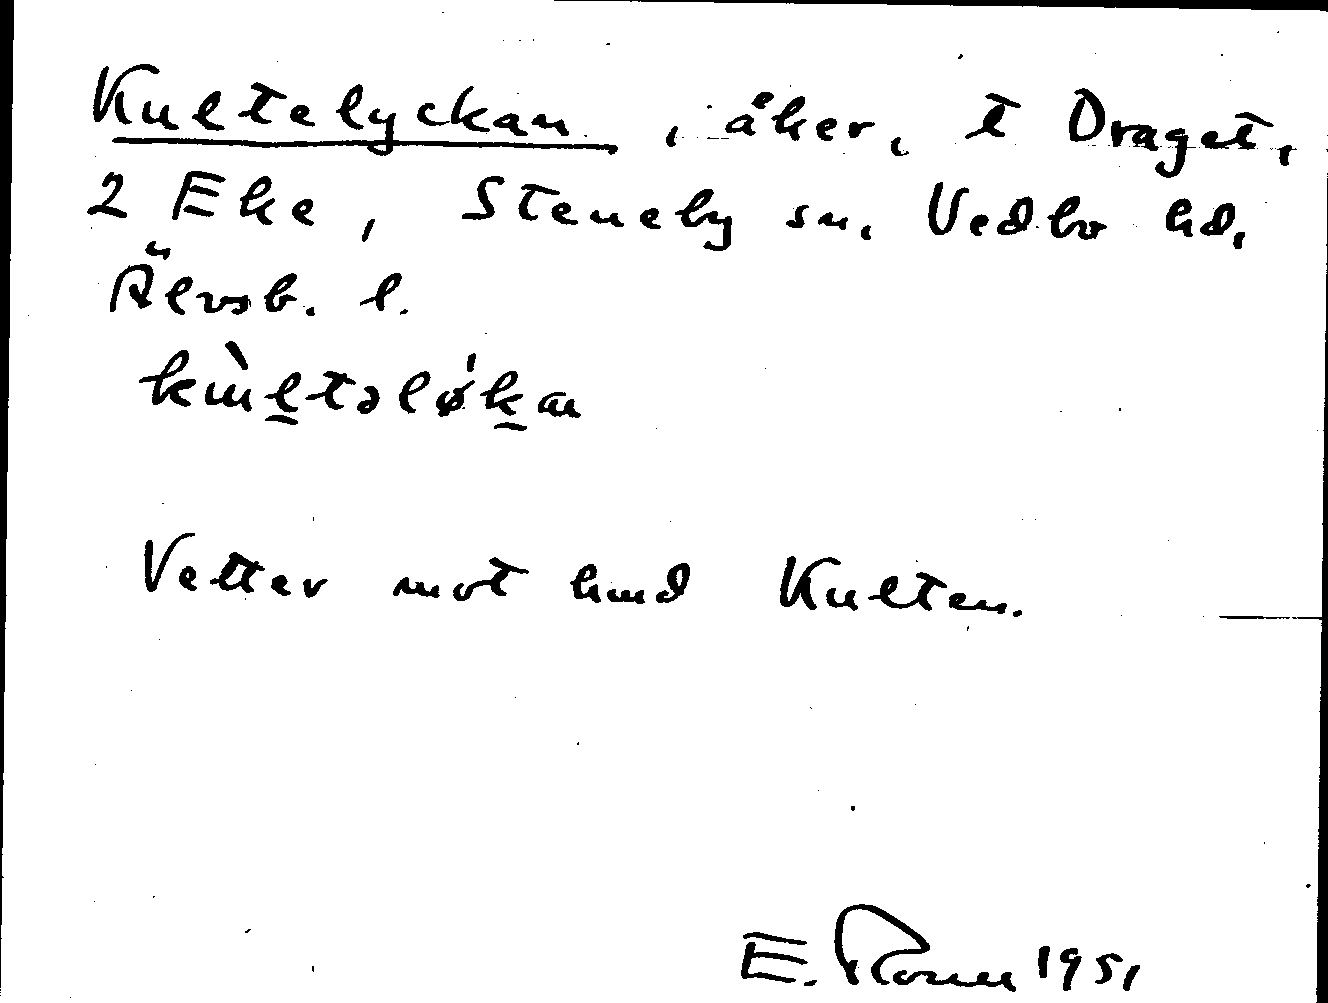 Kultelyckan, åker, t Draget,
2 Eke, Steneby sn. Vedbo hd.
Älvsb. l.
kùl̲təløˈk̲an
Vetter mot hmd Kulten.
E. 1951